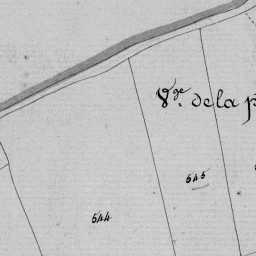 Vge. de la
545
544